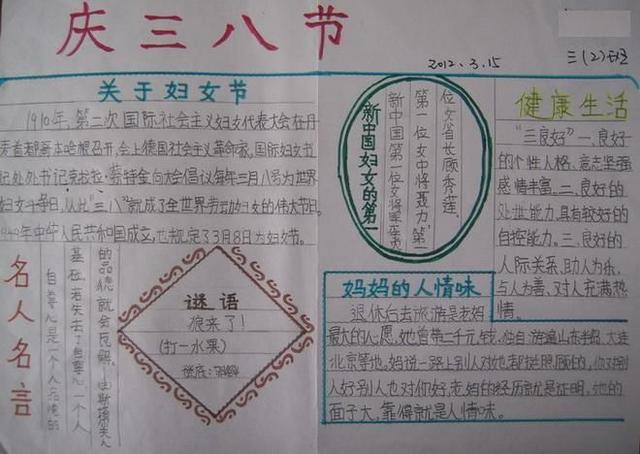 庆三八节
2012.3.15
三(2)班
关于妇女节
1910年,第二次国际社会主义妇女代表大会在丹
麦首都哥本哈根召开,会上德国社会主义革命家,国际妇女书
记处处书记克拉拉·蔡特金向大会倡议每年三月八号为世界
妇女斗争日,从此"三八"就成了全世界劳动妇女的伟大节日。
1949年中华人民共和国成立,也规定了3月8日为妇女节。
新中国妇女的第一
新中国第一位女将军
第一位女中将聂力,第一
位女首长顾秀莲,
健康生活
"三良好"一、良好
的个性人格、意志坚强
感情丰富。二、良好的
处世能力,具有较好的
自控能力。三、良好的
人际关系,助人为乐、
与人为善、对人充满热
情。
名人名言
自尊心是一个人品德的
基础。若失去了自尊心,一个人
的品德就会瓦解。
谜语
狼来了!
(打一水果)
谜底:
妈妈的人情味
退休后去旅游是老妈
最大的心愿,她曾带二千元钱,独自游遍山东半岛、大连
北京等地。妈说一路上别人对她都挺照顾的,你对别
人好别人也对你好,老妈的经历就是证明。她的
面子大,靠得就是人情味。